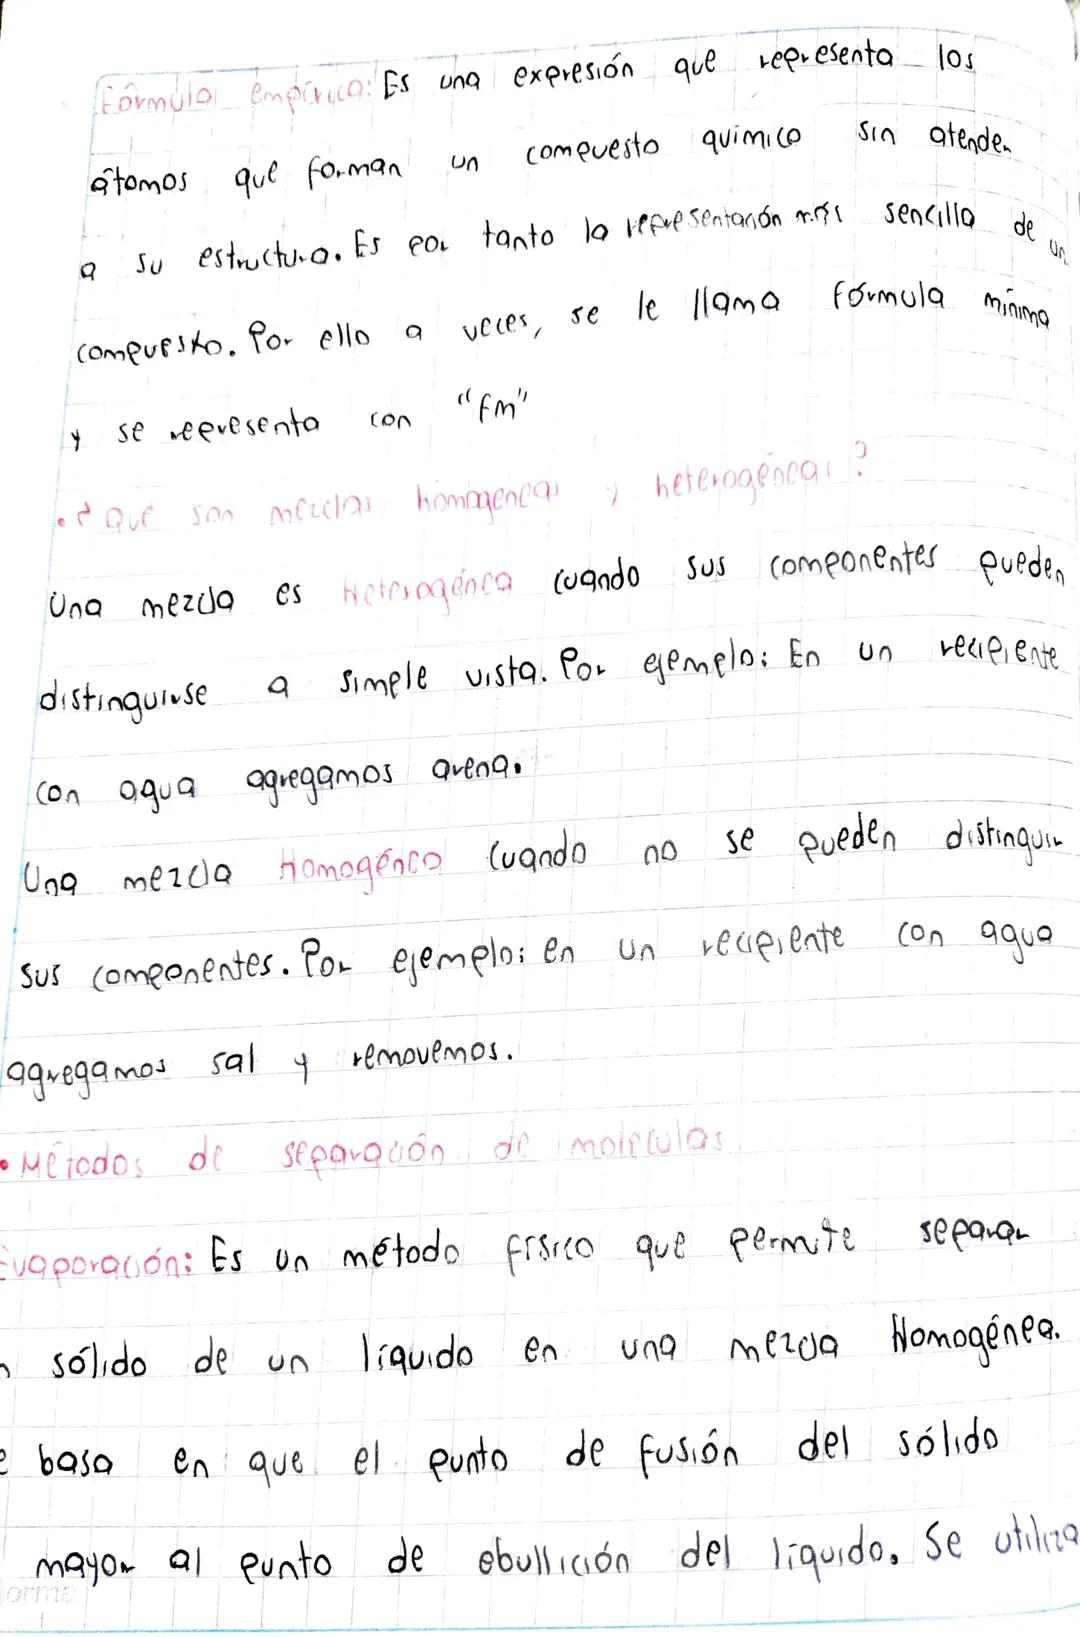 Fórmula empírica: Es una expresión que representa los
átomos que forman un compuesto químico sin atender
a su estructura. Es por tanto la representación más sencilla de un
compuesto. Por ello a veces, se le llama fórmula mínima
y se representa con "fm"
• ¿Que son mezclas homogeneas y heterogéneas?
Una mezcla es Heterogénea cuando sus componentes pueden
distinguirse a simple vista. Por ejemplo: En un recipiente
con agua agregamos arena.
Una mezcla Homogénea cuando no se pueden distinguir
sus componentes. Por ejemplo: en un recipiente con agua
agregamos sal y removemos.
• Métodos de separación de moléculas
Evaporación: Es un método físico que permite separar
n sólido de un líquido en una mezcla Homogénea.
e basa en que el punto de fusión del sólido
mayor al punto de ebullición del líquido. Se utiliza
orma